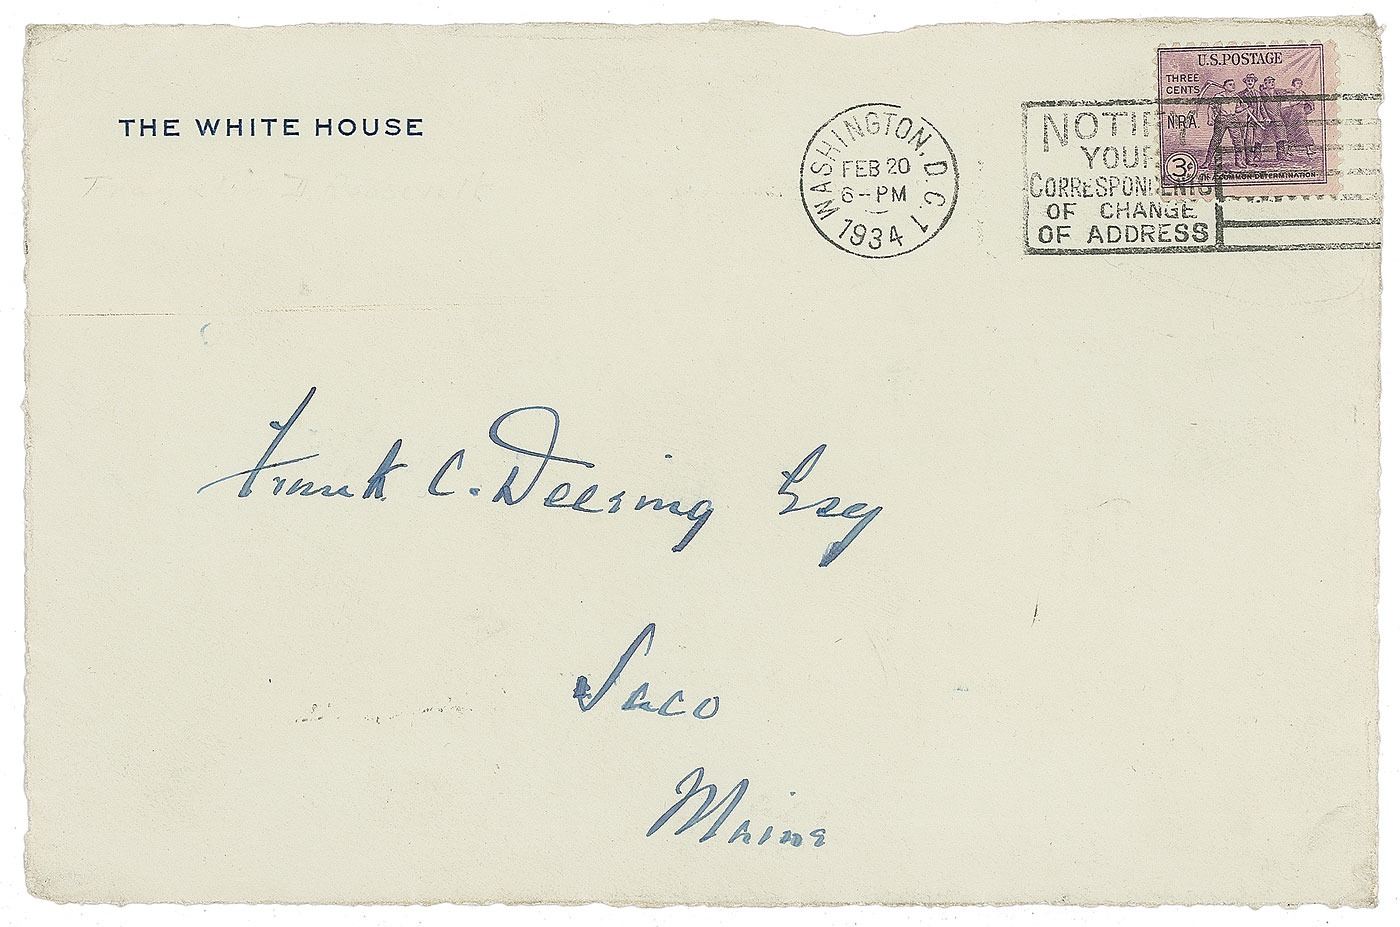 THE WHITE HOUSE
WASHINGTON, D.C. 1
FEB 20
6-PM
1934
NOTIFY
YOUR
CORRESPONDENTS
OF CHANGE
OF ADDRESS
U.S.POSTAGE
THREE
CENTS
N.R.A.
3¢
IN A COMMON DETERMINATION
Frank C. Deering Esq
Saco
Maine